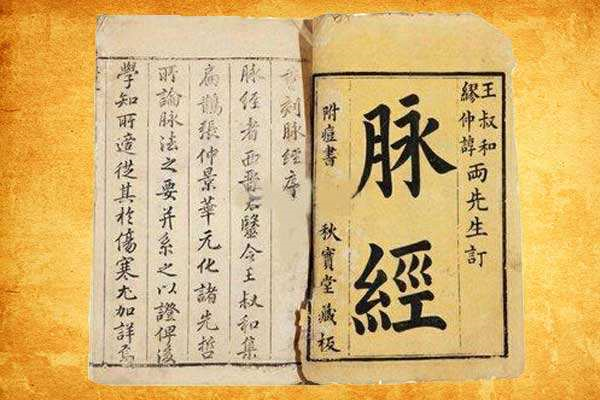 王叔和
繆仲諄
兩先生訂
脉經
附痘書
秋實堂藏板
刻脉經序
脉經者西晉醫令王叔和集
扁鵲張仲景華元化諸先哲
所論脉法之要并系之以證俾後
學知所適從其於傷寒尤加詳焉